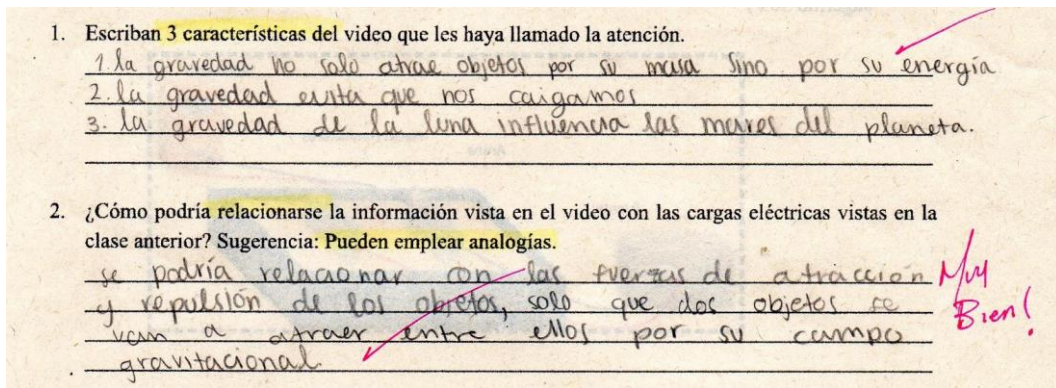 1. Escriban 3 características del video que les haya llamado la atención.
1. la gravedad no solo atrae objetos por su masa sino por su energía
2. la gravedad evita que nos caigamos
3. la gravedad de la luna influencia las mares del planeta.
2. ¿Cómo podría relacionarse la información vista en el video con las cargas eléctricas vistas en la
clase anterior? Sugerencia: Pueden emplear analogías.
se podría relacionar con las fuerzas de atracción
y repulsión de los objetos, solo que dos objetos se
van a atraer entre ellos por su campo
gravitacional.
Muy
Bien!